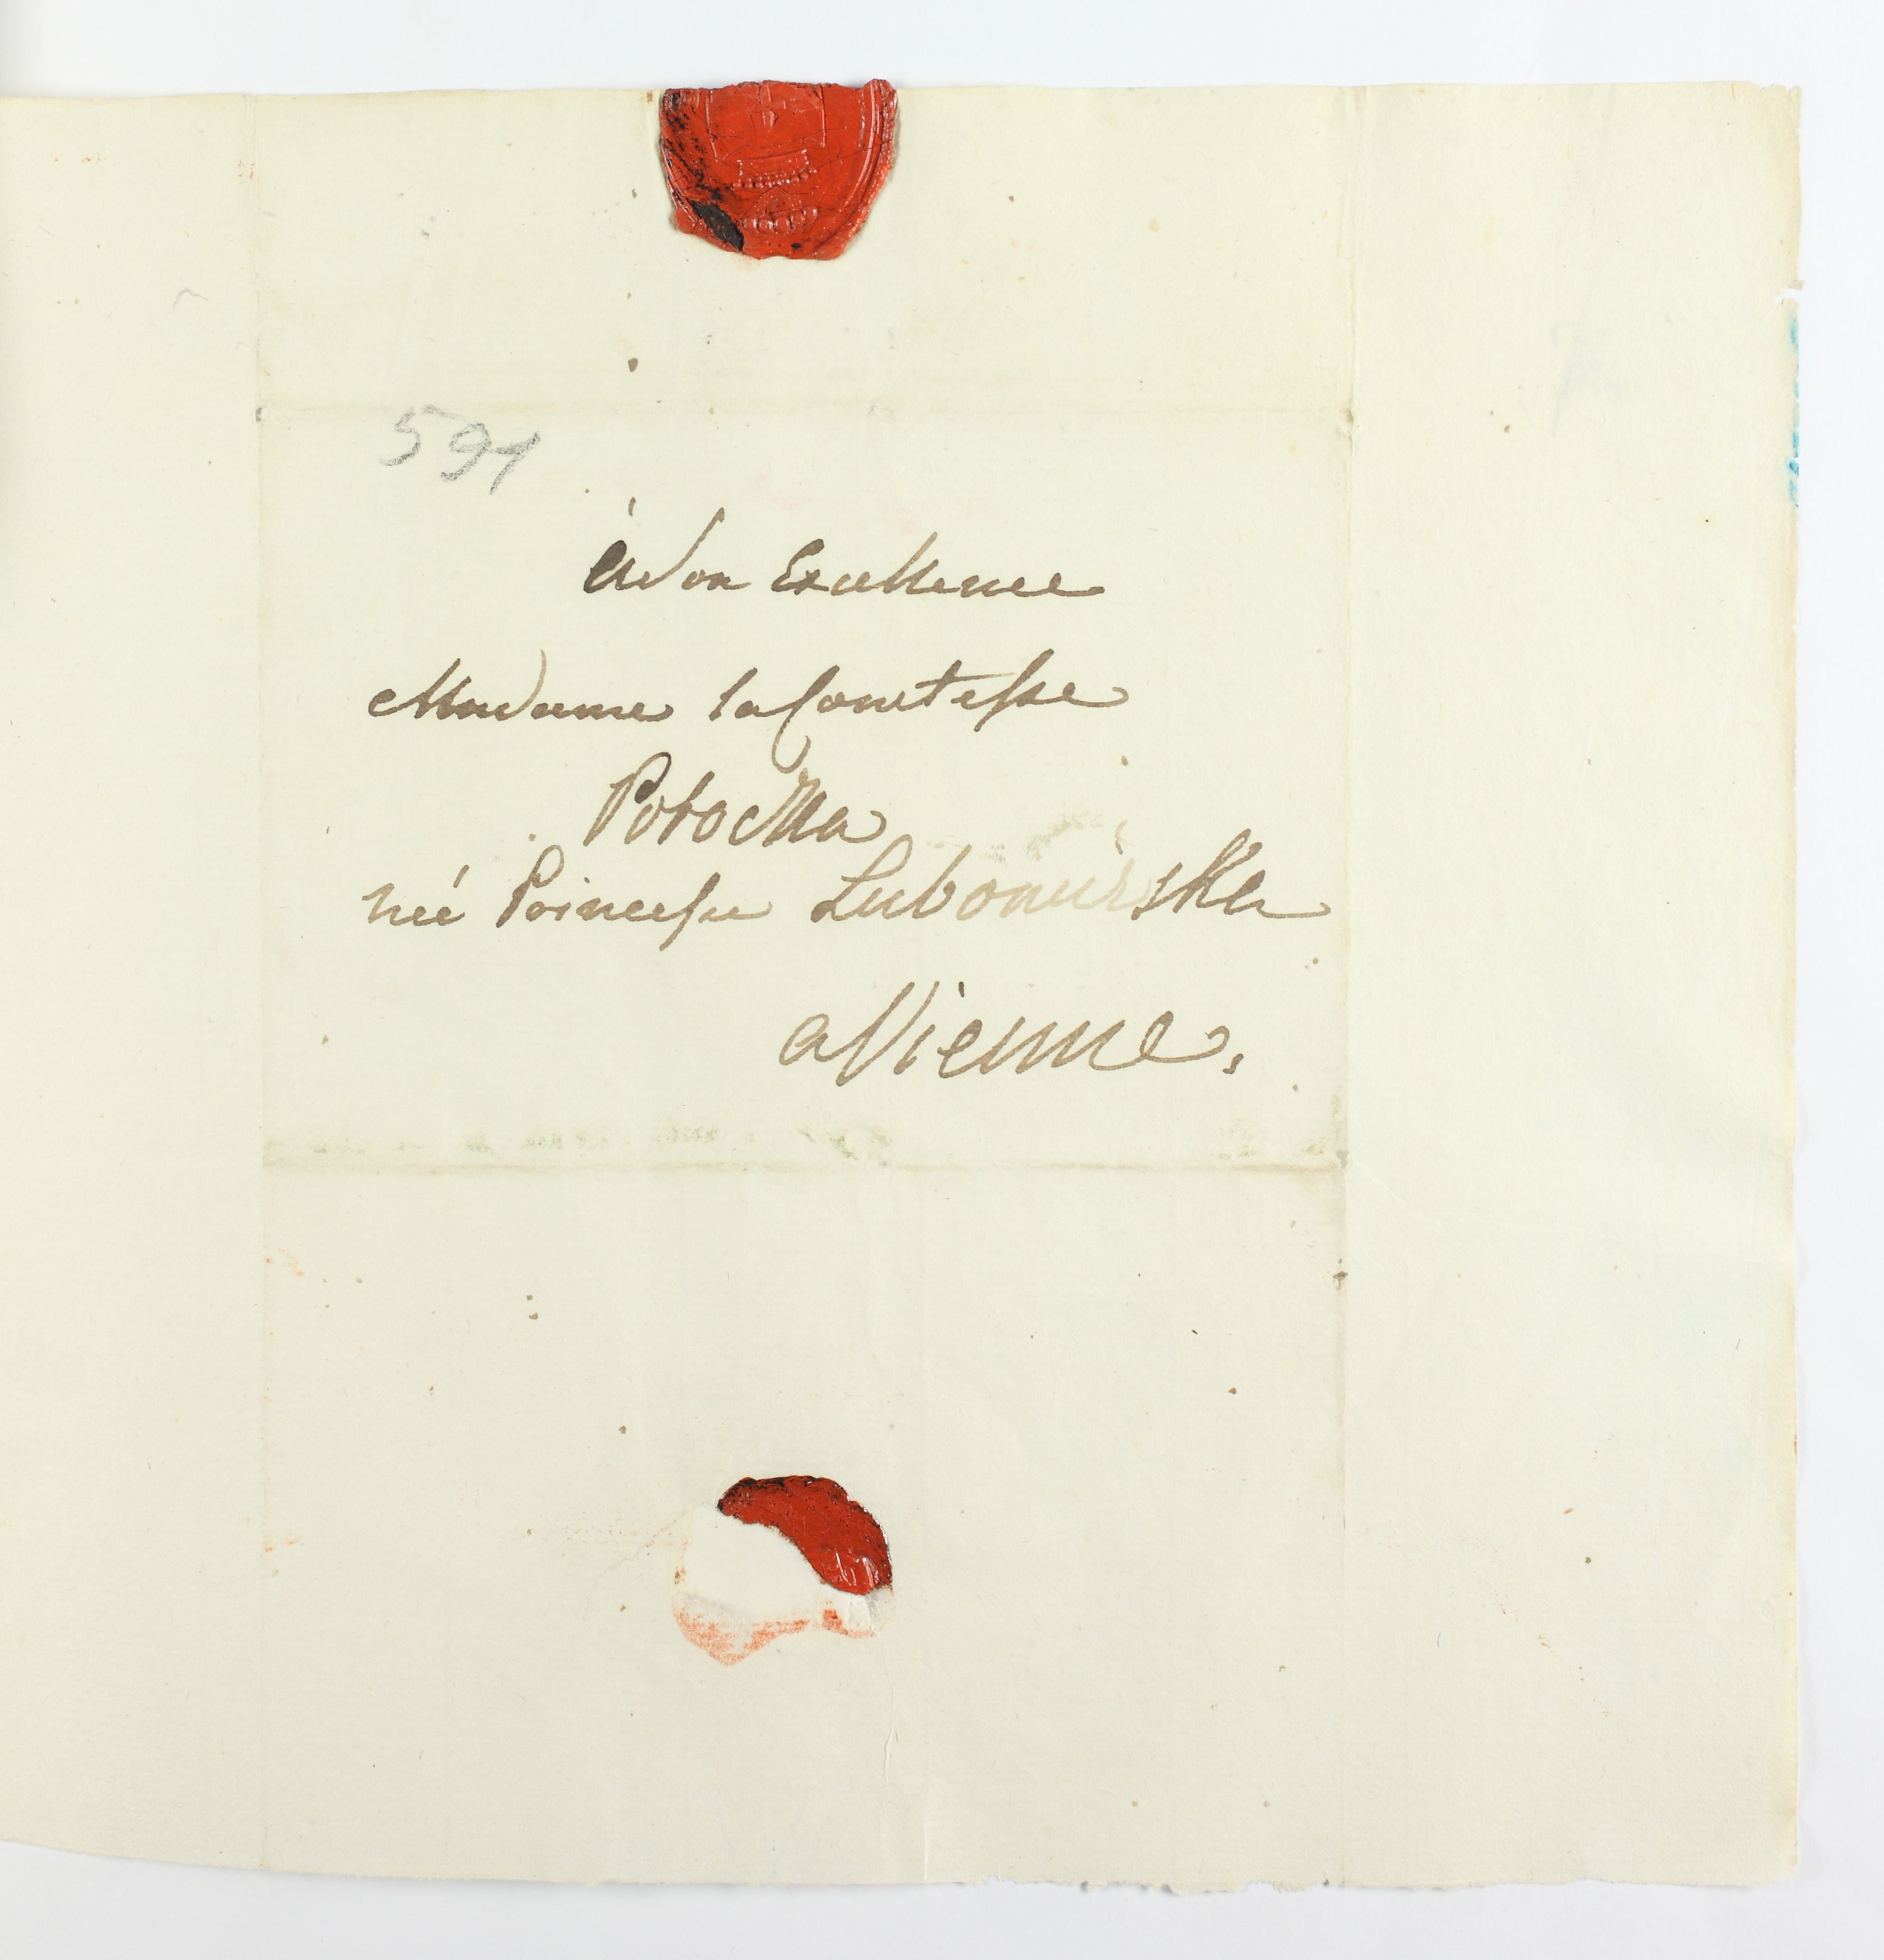 591
à Son Excellence
Madame la Comtesse
Potocka
née Princesse Lubomirska
a Vienne.